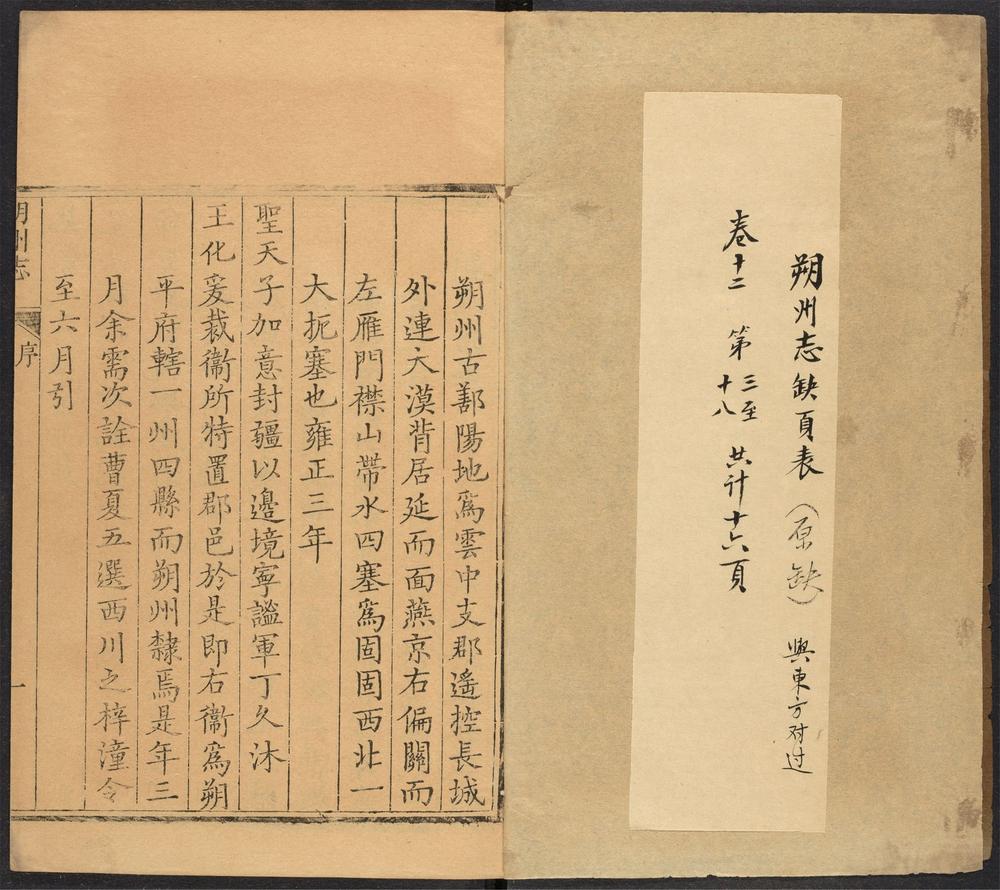 朔州志缺頁表(原缺) 與東方对过
卷十二 第三至十八 共计十六頁
朔州古鄯陽地爲雲中支郡遙控長城
外連大漠背居延而面燕京右偏關而
左雁門襟山帶水四塞爲固固西北一
大扼塞也雍正三年
聖天子加意封疆以邊境寧謐軍丁久沐
王化爰裁衞所特置郡邑於是即右衞爲朔
平府轄一州四縣而朔州隸焉是年三
月余需次詮曹夏五選西川之梓潼令
至六月引
朔州志
序
一